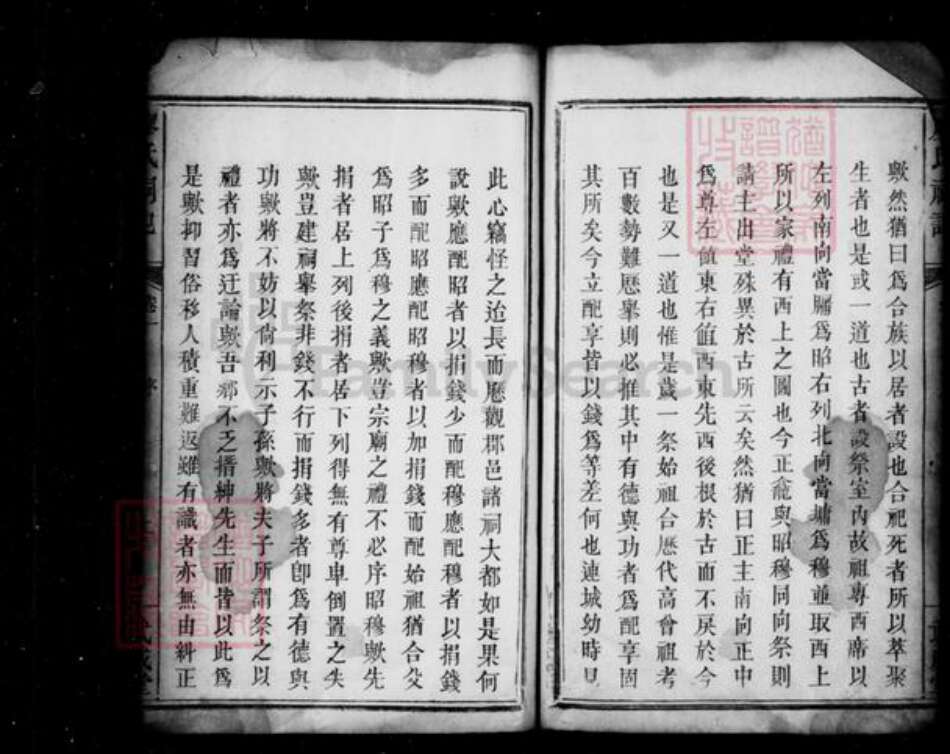 歟然猶曰爲合族以居者設也合祀死者所以萃聚
生者也是或一道也古者設祭室內故祖專西席以
左列南向當牖爲昭右列北向當墉爲穆並取西上
所以家禮有西上之圖也今正龕與昭穆同向祭則
請主出堂殊異於古所云矣然猶曰正主南向正中
爲尊左饎東右饎西東先西後根於古而不戾於今
也是又一道也惟是歲一祭始祖合歷代高曾祖考
百數勢難歷舉則必推其中有德與功者爲配享固
其所矣今立配享皆以錢爲等差何也連城幼時見
此心竊怪之迨長而歷觀郡邑諸祠大都如是果何
說歟應配昭者以捐錢少而配穆應配穆者以捐錢
多而配昭應昭穆者以加捐錢而配始祖猶合父
爲昭子爲穆之義歟豈宗廟之禮不必序昭穆歟先
捐者居上列後捐者居下列得無有尊卑倒置之失
歟豈建祠舉祭非錢不行而捐錢多者卽爲有德與
功歟將不妨以尙利示子孫歟將夫子所謂祭之以
禮者亦爲迂論歟吾鄉不乏搢紳先生而皆以此爲
是歟抑習俗移人積重難返雖有識者亦無由糾正
氏祠記
FamilySearch